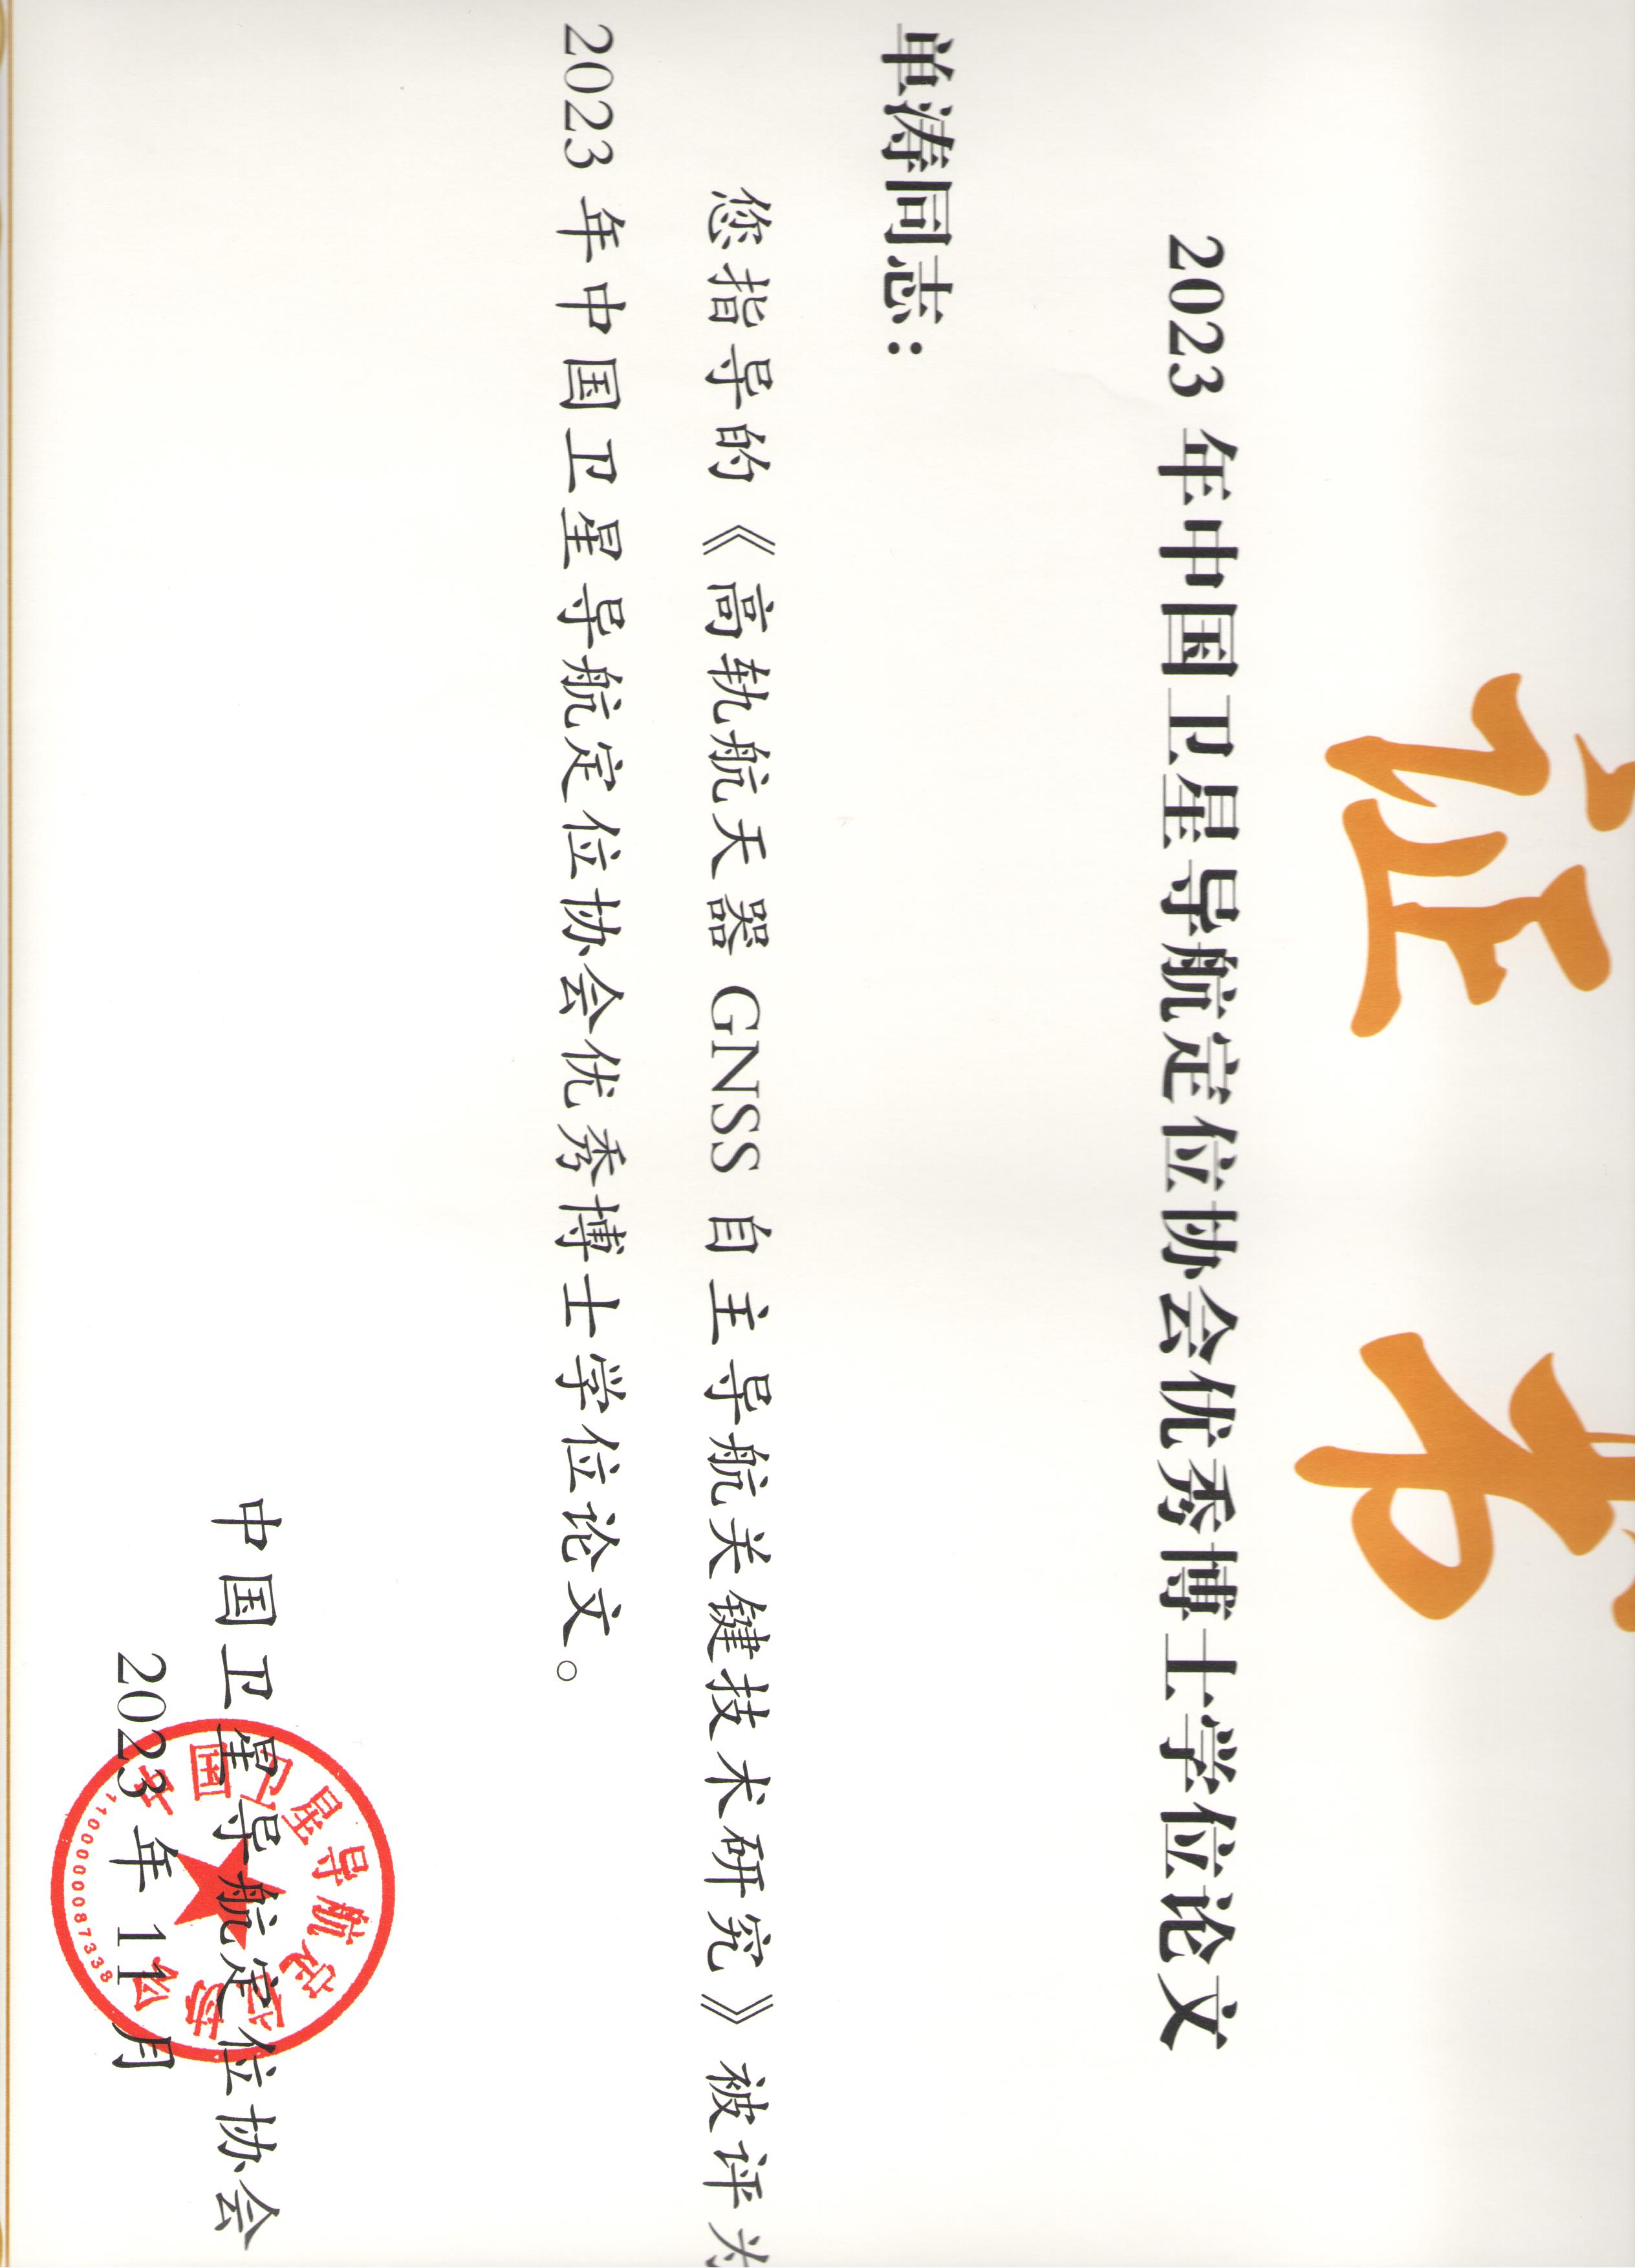 证书
2023 年中国卫星导航定位协会优秀博士学位论文
单涛同志：
您指导的《高轨航天器 GNSS 自主导航关键技术研究》被评为
2023 年中国卫星导航定位协会优秀博士学位论文。
中国卫星导航定位协会
2023 年 11 月
中国卫星导航定位协会
1100000087338